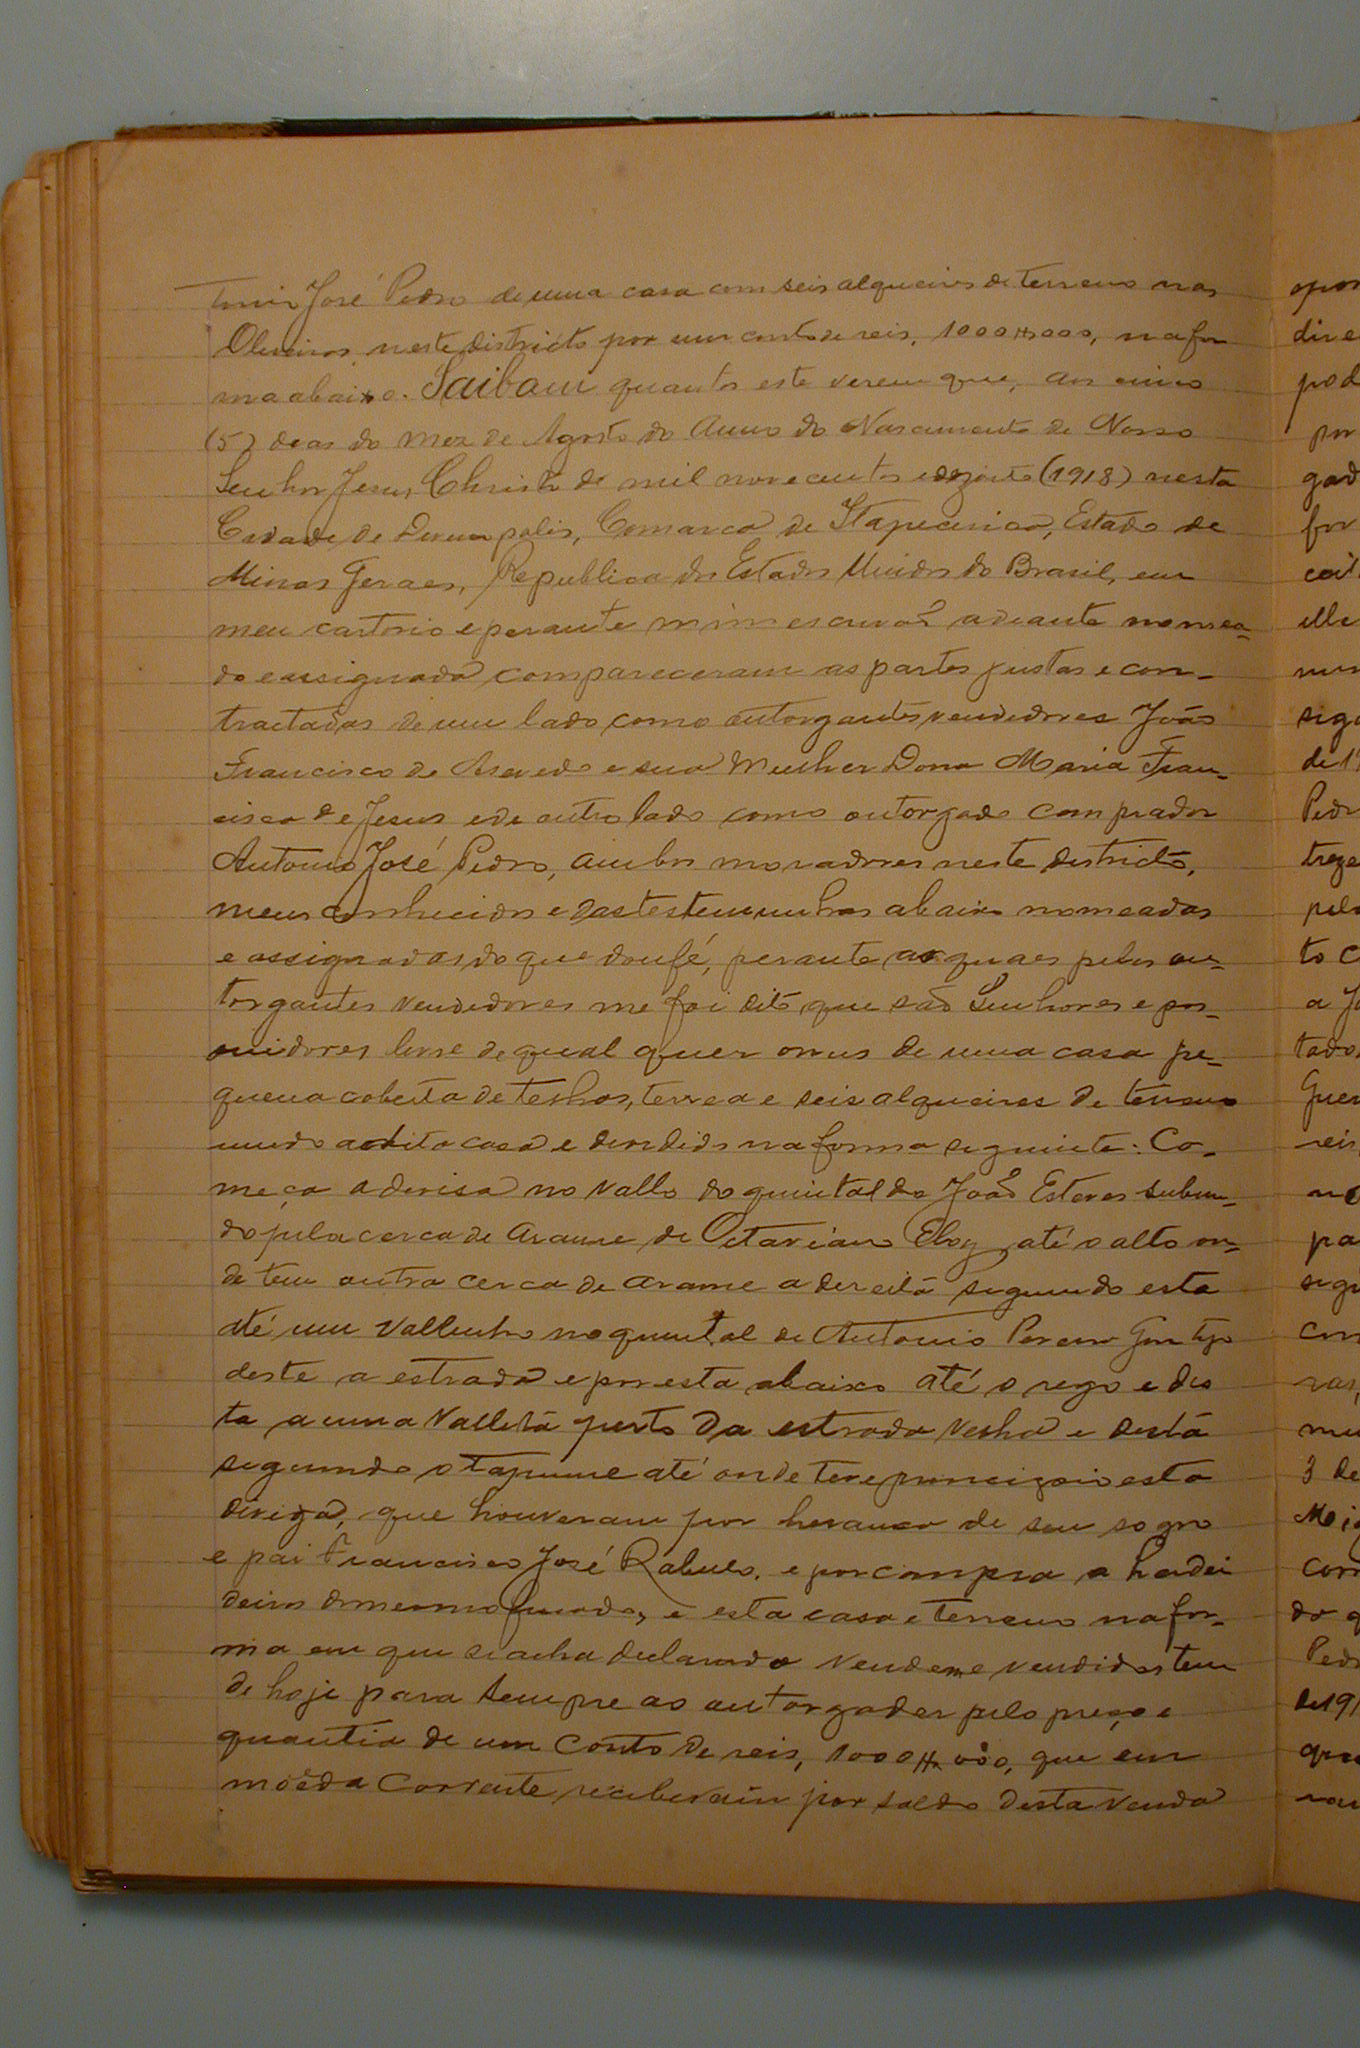 tonio José Pedro de uma casa com seis alqueires de terreno nas
Oliveiras neste districto por um conto de reis, 1000$000, na for
ma abaixo. Saibam quantos este verem que, aos cinco
(5) deas do mez de Agosto do Anno do Nascimento de Nosso
Senhor Jesus Christo de mil novecentos edezoito (1918) nesta
Cedade de Devenopolis, Comarca de Itapecerica, Estado de
Minas Geraes, Republica dos Estados Unidos do Brasil, em
meu cartorio e perante mim escrivaõ adeante nomea-
do e assignado compareceram as partes justas e con-
tractadas de um lado como outorgantes vendedores João
Francisco de Asevedo e sua Mulher Dona Maria Fran-
cisca de Jesus e de outro lado como outorgado comprador
Antonio José Pedro, ambos moradores neste districto,
meus conhecidos e das testemunhas abaixo nomeadas
e assignadas, do que dou fé, perante as quaes pelos ou-
torgantes vendedores me foi dito que são Senhores e pos-
suidores livre de qual quer onus de uma casa pe-
quena coberta de telhas, terrea e seis alqueires de terreno
unido a dita casa e devedido na forma seguinte: Co-
meça a devisa no vallo do quintal do João Esteves subin-
do pela cerca de Arame de Octaviano Eloy até o alto on-
de tem outra cerca de arame a dereita seguindo esta
até um Vallinho no quintal de Antonio Pereira Gontijo
deste a estrada e por esta abaixo até o rego e des
ta a uma Valleta perto da estrada velha e desta
seguindo o tapume até onde teve principio esta
deviza, que houveram por herança de seu sogro
e pai Francisco José Rabelo, e por compra a herdei
deiros do mesmo finado, e esta casa e terreno na for-
ma em que se acha declarado vendem e vendidos tem
de hoje para sempre ao outorgado pelo preço e
quantia de um conto de reis, 1000$000, que em
moéda corrente receberam por saldo desta venda